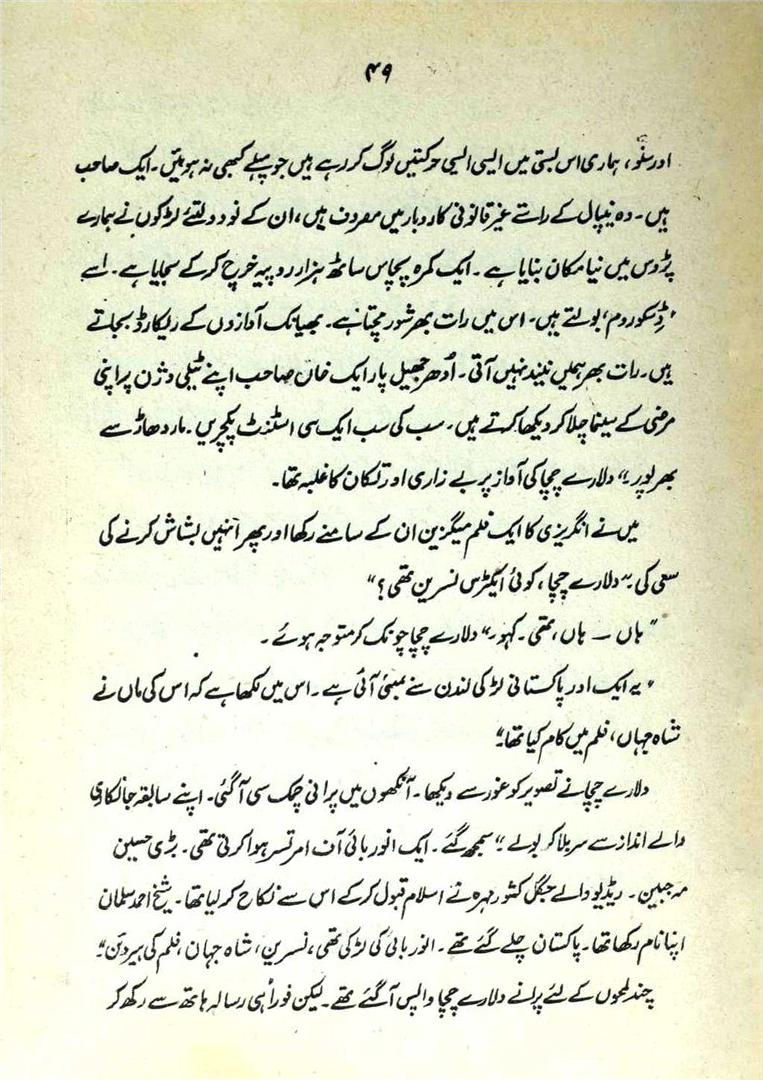 ۴۹
اور سنو، ہماری اس بستی میں ایسی ایسی حرکتیں لوگ کر رہے ہیں جو پہلے کبھی نہ ہوئیں۔ ایک صاحب
ہیں۔ وہ نیپال کے راستے غیر قانونی کاروبار میں مصروف ہیں، ان کے نو دولتئے لڑکوں نے ہمارے
پڑوس میں نیا مکان بنایا ہے۔ ایک کمرہ پچاس ساٹھ ہزار روپیہ خرچ کر کے سجایا ہے۔ اسے
'ڈِسکو روم' بولتے ہیں۔ اس میں رات بھر شور مچتا ہے۔ بھیانک آوازوں کے ریکارڈ بجاتے
ہیں۔ رات بھر ہمیں نیند نہیں آتی۔ اُدھر جھیل پار ایک خان صاحب اپنے ٹیلی وژن پر اپنی
مرضی کے سینما چلا کر دیکھا کرتے ہیں۔ سب کی سب ایک سی اسٹنٹ پکچریں۔ مار دھاڑ سے
بھر پور۔" دلارے چچا کی آواز پر بے زاری اور تکان کا غلبہ تھا۔
میں نے انگریزی کا ایک فلم میگزین ان کے سامنے رکھا اور پھر انہیں بشاش کرنے کی
سعی کی۔ "دلارے چچا، کوئی ایکٹرس نسرین تھی؟"
"ہاں — ہاں، تھی۔ کہو۔" دلارے چچا چونک کر متوجہ ہوئے۔
"یہ ایک اور پاکستانی لڑکی لندن سے بمبئی آئی ہے۔ اس میں لکھا ہے کہ اس کی ماں نے
شاہ جہاں، فلم میں کام کیا تھا۔"
دلارے چچا نے تصویر کو غور سے دیکھا۔ آنکھوں میں پرانی چمک سی آ گئی۔ اپنے سابقہ جانکاری
والے انداز سے سر ہلا کر بولے۔ "سمجھ گئے۔ ایک انور بائی آف امرتسر ہوا کرتی تھی۔ بڑی حسین
مہ جبین۔ ریڈیو والے جگل کشور مہرہ نے اسلام قبول کر کے اس سے نکاح کر لیا تھا۔ شیخ احمد سلمان
اپنا نام رکھا تھا۔ پاکستان چلے گئے تھے۔ انور بائی کی لڑکی تھی، نسرین، شاہ جہاں، فلم کی ہیروئن۔"
چند لمحوں کے لئے پرانے دلارے چچا واپس آ گئے تھے۔ لیکن فوراً ہی رسالہ ہاتھ سے رکھ کر